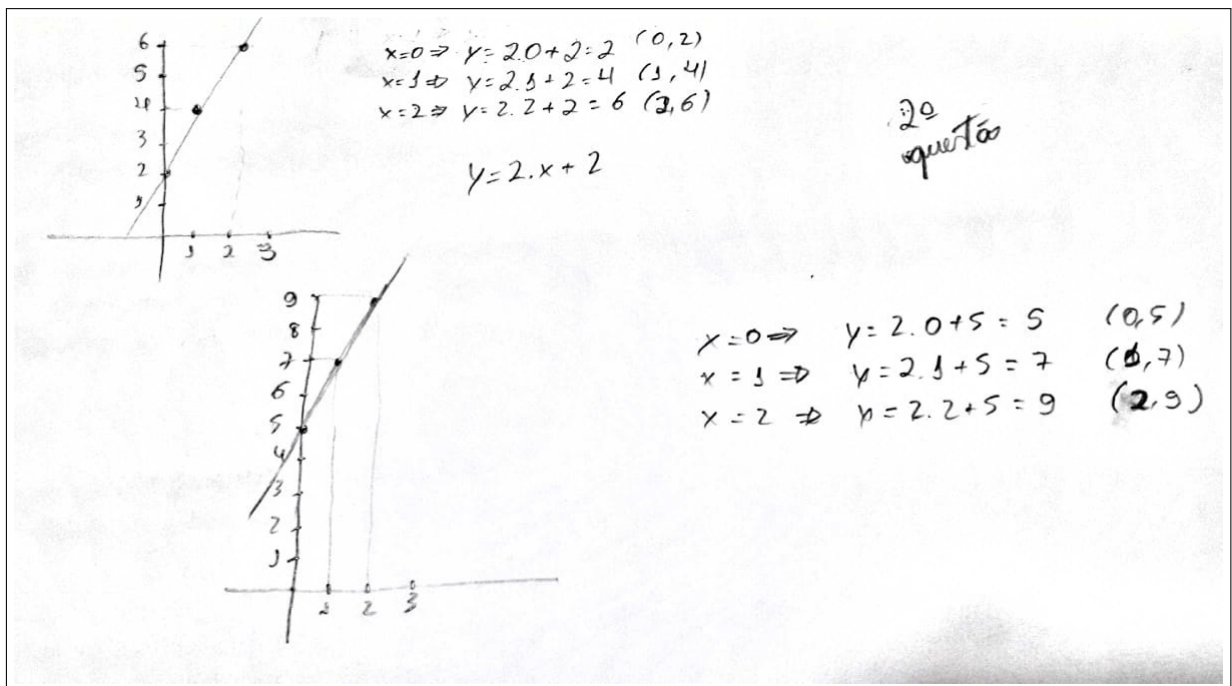 6
5
4
3
2
1
1 2 3
x=0⇒ y=2.0+2=2 (0,2)
x=1⇒ y=2.1+2=4 (1,4)
x=2⇒ y=2.2+2=6 (2,6)
y=2.x+2
2º
questão
9
8
7
6
5
4
3
2
1
1 2 3
x=0⇒ y=2.0+5=5 (0,5)
x=1⇒ y=2.1+5=7 (1,7)
x=2⇒ y=2.2+5=9 (2,9)